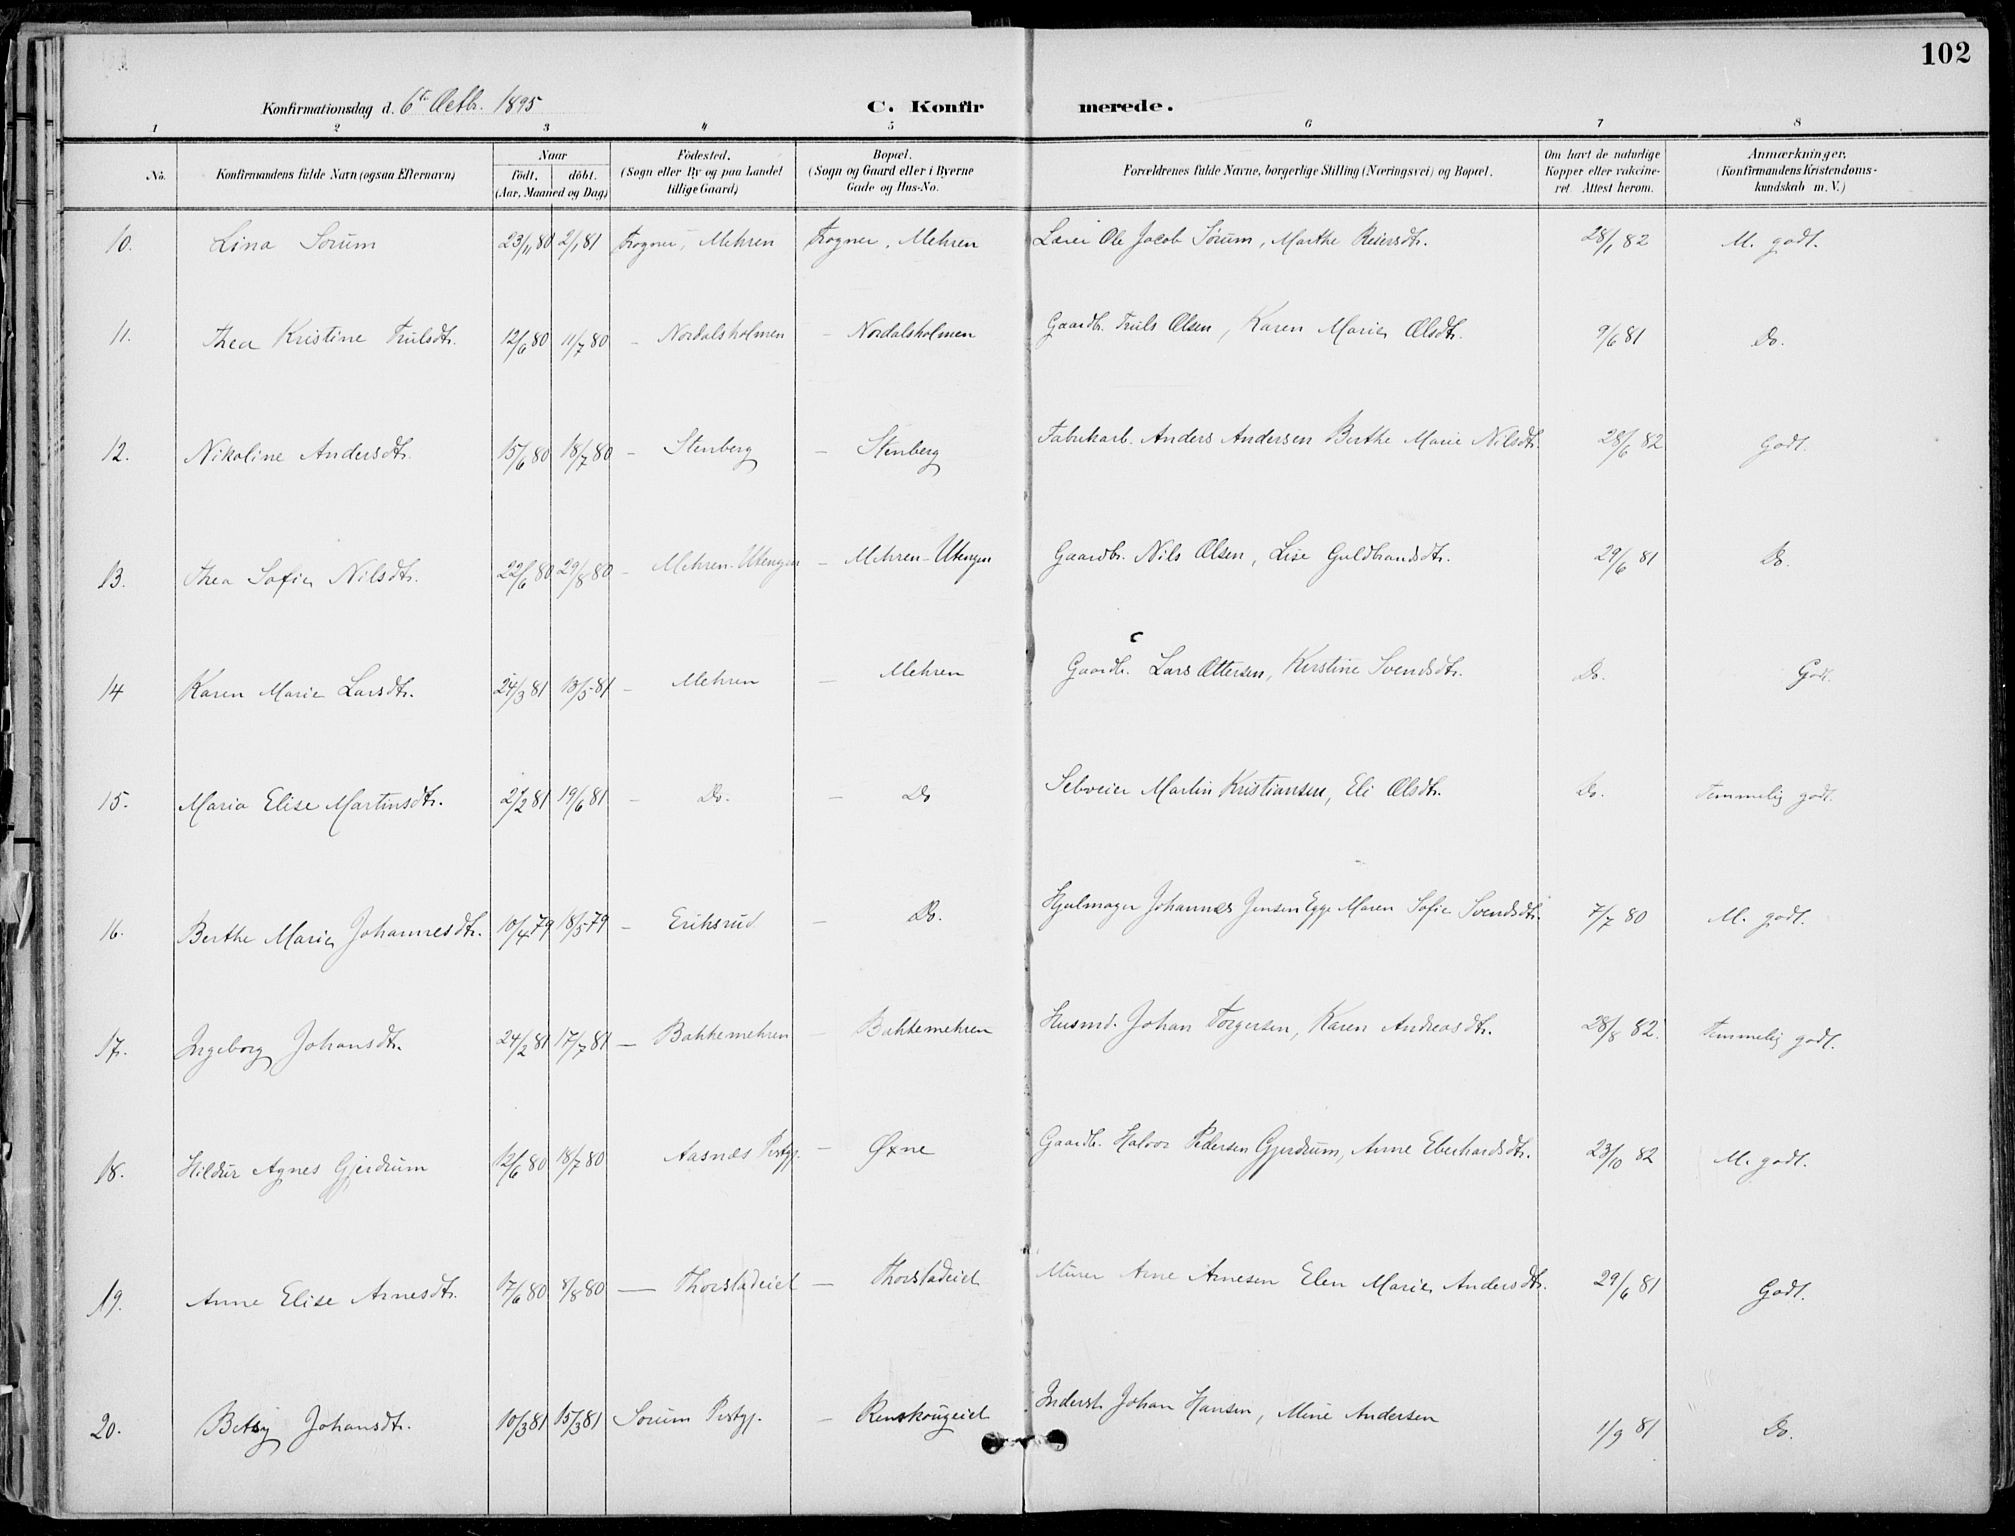 102
Konfirmationsdag d. 6te Octb. 1895 C. Konfir merede.
1 2 3 4 5 6 7 8
No. Konfirmandens fulde Navn (ogsaa Efternavn) Naar födt. döbt. (Aar, Maaned og Dag) Födested. (Sogn eller By og paa Landet tillige Gaard) Bopæl. (Sogn og Gaard eller i Byerne Gade og Hus-No. Forældrenes fulde Navne, borgerlige Stilling (Næringsvei) og Bopæl. Om havt de naturlige Kopper eller vakcineret. Attest herom. Anmærkninger. (Konfirmandens Kristendomskundskab m. V.)
10. Lina Sorum 23/11 80 2/1 81 Frogner, Mehren Frogner, Mehren Lærer Ole Jacob Sørum, Marthe Reiersdtr. 28/1 82 M. godt.
11. Thea Kristine Trulsdtr. 12/6 80 11/7 80 – Nordalsholmen – Nordalsholmen Gaardbr. Truls Olsen, Karen Marie Olsdtr. 9/6 81 Do.
12. Nikoline Andersdtr. 15/6 80 18/7 80 – Stenberg – Stenberg Fabrikarb. Anders Andersen Berthe Marie Nilsdtr. 28/6 82 Godt.
13. Thea Sofie Nilsdtr. 22/6 80 29/8 80 – Mehren-Utengen – Mehren-Utengen Gaardbr. Nils Olsen, Lise Guldbrandsdtr. 29/6 81 Do.
14 Karen Marie Larsdtr. 24/3 81 13/5 81 – Mehren – Mehren Gaardbr. Lars Ottersen, Kirstine Svendsdtr. Do. Godt.
15. Maria Elise Martinsdtr. 2/2 81 19/6 81 – Do. – Do Selveier Martin Kristiansen, Eli Olsdtr. Do. Temmelig godt.
16. Berthe Marie Johannesdtr. 10/4 79 18/5 79 – Eriksrud – Do. Hjulmager Johannes Jensen Egge Maren Sofie Svendsdtr. 7/7 80 M. godt.
17. Ingeborg Johansdtr. 24/2 81 17/7 81 – Bakkemehren – Bakkemehren Husmd. Johan Torgersen, Karen Andreasdtr. 28/8 82. Temmelig godt.
18. Hildur Agnes Gjerdrum 12/6 80 18/7 80 Aasnæs Prstgj. – Øxne Gaardbr. Halvor Pedersen Gjerdrum, Anne Eberhardsdtr. 23/10 82 M. godt.
19. Anne Elise Arnesdtr. 17/6 80 8/8 80 – Thorstadeiet – Thorstadeiet Murer Arne Arnesen Elen Marie Andersdtr. 29/6 81 Godt.
20. Betsy Johansdtr. 10/3 81 15/3 81 Sorum Prstgj. – Renskougeiet Inderst. Johan Hansen, Mine Andersen 1/9 81 Do.